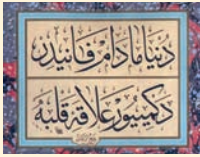 دنيا مادام فانيدر
دكميور علاقۀ قلبه